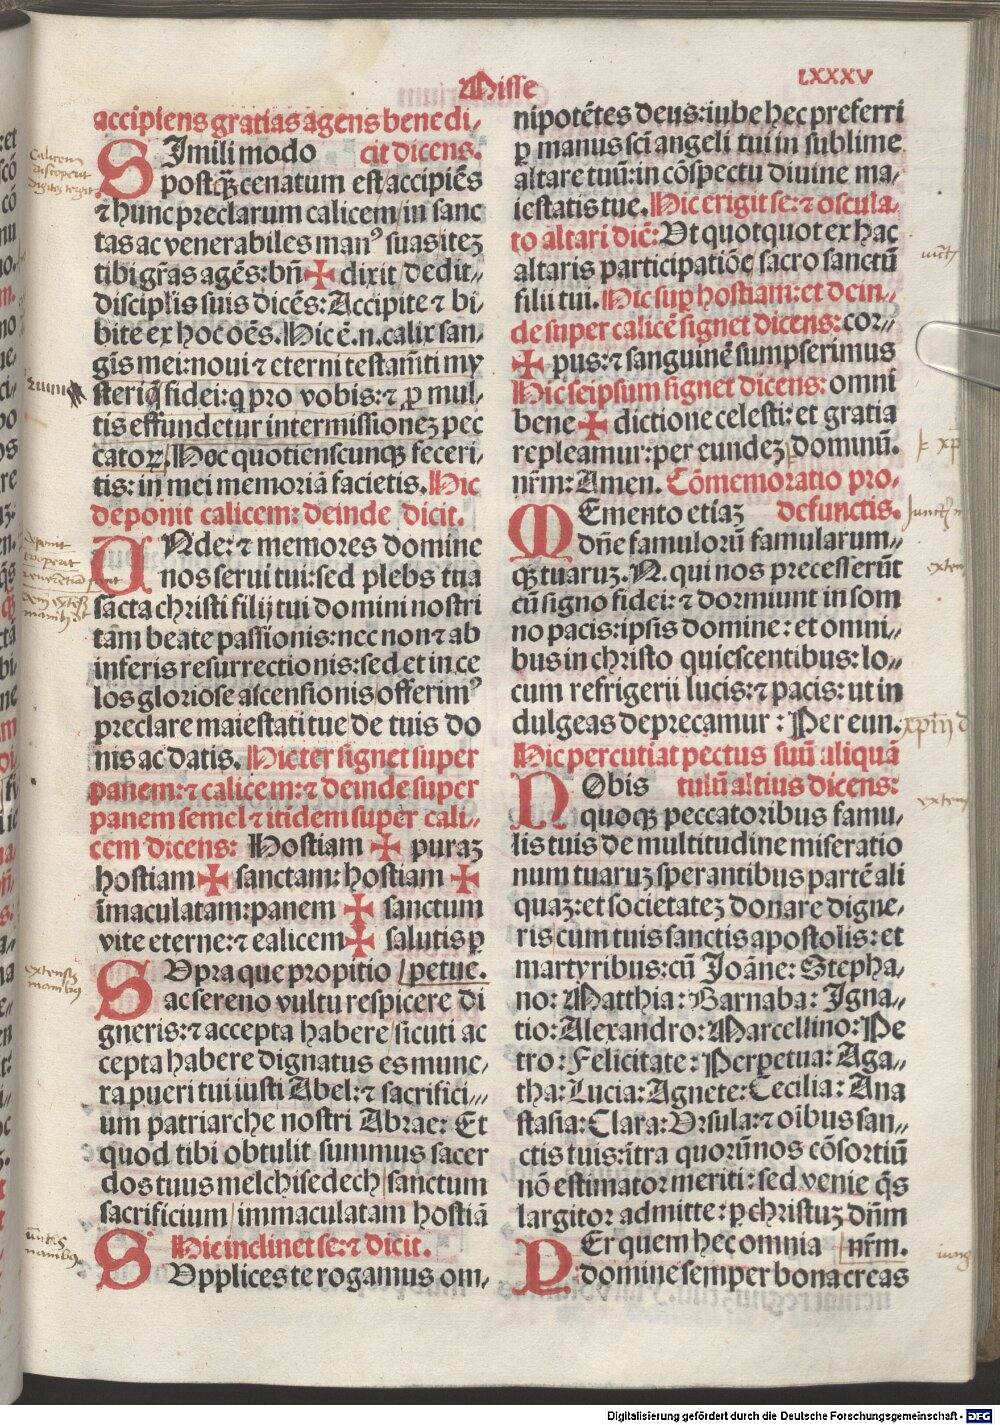 Misse
LXXXV
accipiens gratias agens benedi-
SImili modo cit dicens.
postq̃ꝫ cenatum est accipiẽs
⁊ hunc preclarum calicem/in sanc
tas ac venerabiles manꝰ suas itez
tibi gr̃as agẽs: bñ✠ dixit dedit-
discipl̃is suis dicẽs: Accipite ⁊ bi-
bite ex hoc oẽs. Hic ẽ.n. calix san-
gĩs mei: noui ⁊ eterni testam̃ti my
sterĩq̃ fidei: q̃ pro vobis: ⁊ ꝓ mul-
tis effundetur in remissionez pec
catoꝝ/Hec quotienscunqꝫ feceri-
tis: in mei memoriã facietis. Hic
deponit calicem: deinde dicit.
VNde: ⁊ memores domine
nos serui tui: sed plebs tua
sacta christi filij tui domini nostri
tãm beate passionis: nec non ⁊ ab
inferis resurrectionis: sed et in ce
los gloriose ascensionis/offerimꝰ
preclare maiestati tue/de tuis do
nis ac datis. Hic ter signet super
panem: ⁊ calicem: ⁊ deinde super
panem semel ⁊ itidem super cali-
cem dicens: Hostiam ✠ puraz
hostiam ✠ sanctam: hostiam ✠
ĩmaculatam: panem ✠ sanctum
vite eterne: ⁊ calicem ✠ salutis ꝑ
SVpra que propitio /petue.
ac sereno vultu respicere di
gneris: ⁊ accepta habere/sicuti ac
cepta habere dignatus es mune-
ra pueri tui iusti Abel: ⁊ sacrifici-
um patriarche nostri Abrae: Et
quod tibi obtulit summus sacer
dos tuus melchisedech/sanctum
sacrificium/immaculatam hostiã
Hic inclinet se: ⁊ dicit.
SVpplices te rogamus om-
nipotẽtes deus: iube hec preferri
ꝑ manus sc̃i angeli tui in sublime
altare tuũ: in cõspectu diuine ma-
iestatis tue. Hic erigit se: ⁊ oscula-
to altari dic̃: Ut quotquot ex hac
altaris participatiõe sacro sanctũ
filii tui. Hic suꝑ hostiam: et dein-
de super calicẽ signet dicens: cor-
✠ pus: ⁊ sanguinẽ sumpserimus
Hic seipsum signet dicens: omni
bene ✠ dictione celesti: et gratia
repleamur: per eundez dominũ.
nr̃m: Amen. Cõmemoratio pro-
MEmento etiaz defunctis.
dñe famulorũ famularum-
qꝫ tuaruz. N. qui nos precesserũt
cũ signo fidei: ⁊ dormiunt in som
no pacis: ipsis domine: et omni-
bus in christo quiescentibus: lo-
cum refrigerii lucis: ⁊ pacis: ut in
dulgeas deprecamur: Per eun.
Hic percutiat pectus suũ aliquã
NObis tulũ altius dicens:
quoqꝫ peccatoribus famu-
lis tuis de multitudine miseratio
num tuaruz sperantibus partẽ ali
quaz: et societatez donare digne-
ris cum tuis sanctis apostolis: et
martyribus: cũ Joãne: Stepha-
no: Matthia: Barnaba: Igna-
tio: Alexandro: Marcellino: Pe
tro: Felicitate: Perpetua: Aga-
tha: Lucia: Agnete: Cecilia: Ana
stasia: Clara: Ursula: ⁊ oĩbus san-
ctis tuis: ĩtra quorũ nos cõsortiũ
nõ estimator meriti: sed venie q̃s
largitor admitte: ꝑ christuz dñm
PEr quem hec omnia /nr̃m.
domine semper bona creas
Digitalisierung gefördert durch die Deutsche Forschungsgemeinschaft - DFG